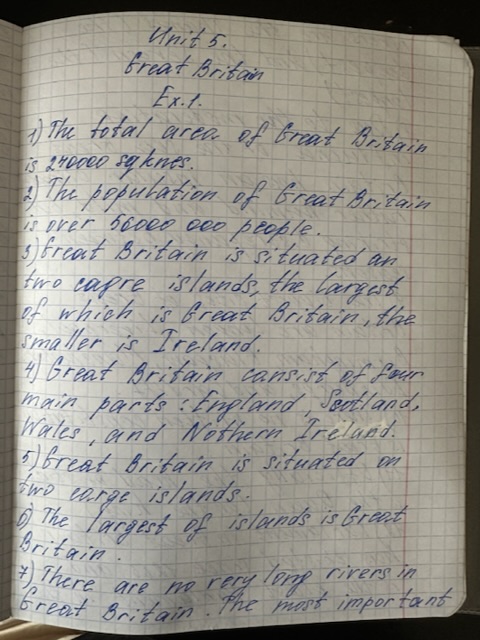 Unit 5.
Great Britain
Ex. 1.
1) The total area of Great Britain
is 240000 sq kmes.
2) The population of Great Britain
is over 56000 000 people.
3) Great Britain is situated an
two cagre islands, the largest
of which is Great Britain, the
smaller is Ireland.
4) Great Britain cansist of four
main parts: England, Scotland,
Wales, and Nothern Ireland.
5) Great Britain is situated on
two carge islands.
6) The largest of islands is Great
Britain.
7) There are no very long rivers in
Great Britain. The most important